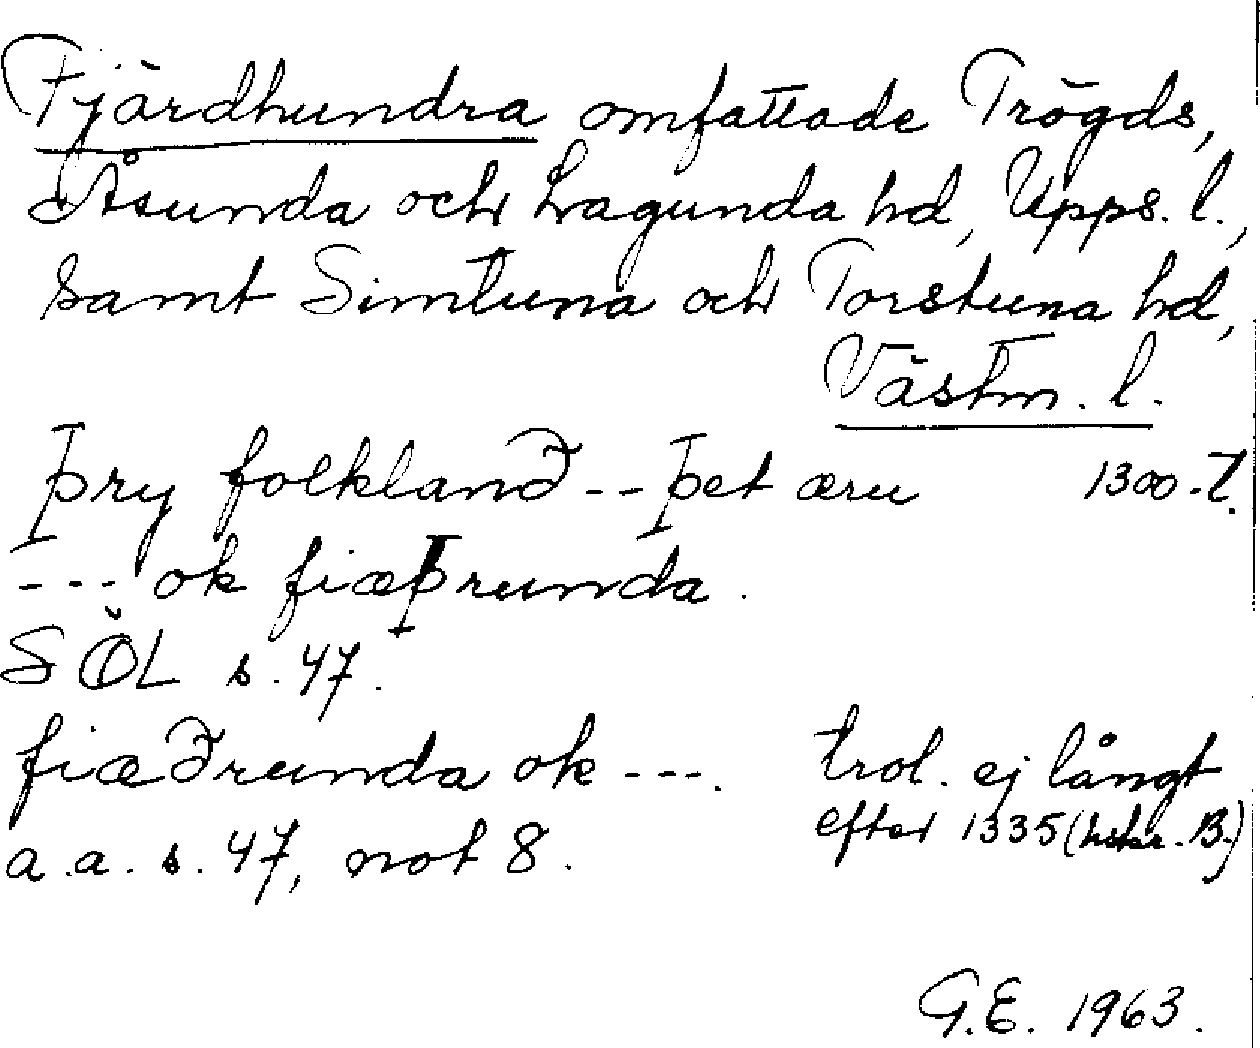 Fjärdhundra omfattade Trögds,
Åsunda och Lagunda hd, Upps. l.,
samt Simtuna och Torstuna hd,
Västm. l.
þry folkland -- þet æru 1300-t.
--- ok fiæþrunda.
SÖL s. 47.
fiæðrunda ok ---. trol. ej långt
efter 1335 (hskr. B.)
a.a. s. 47, not 8.
G.E. 1963.